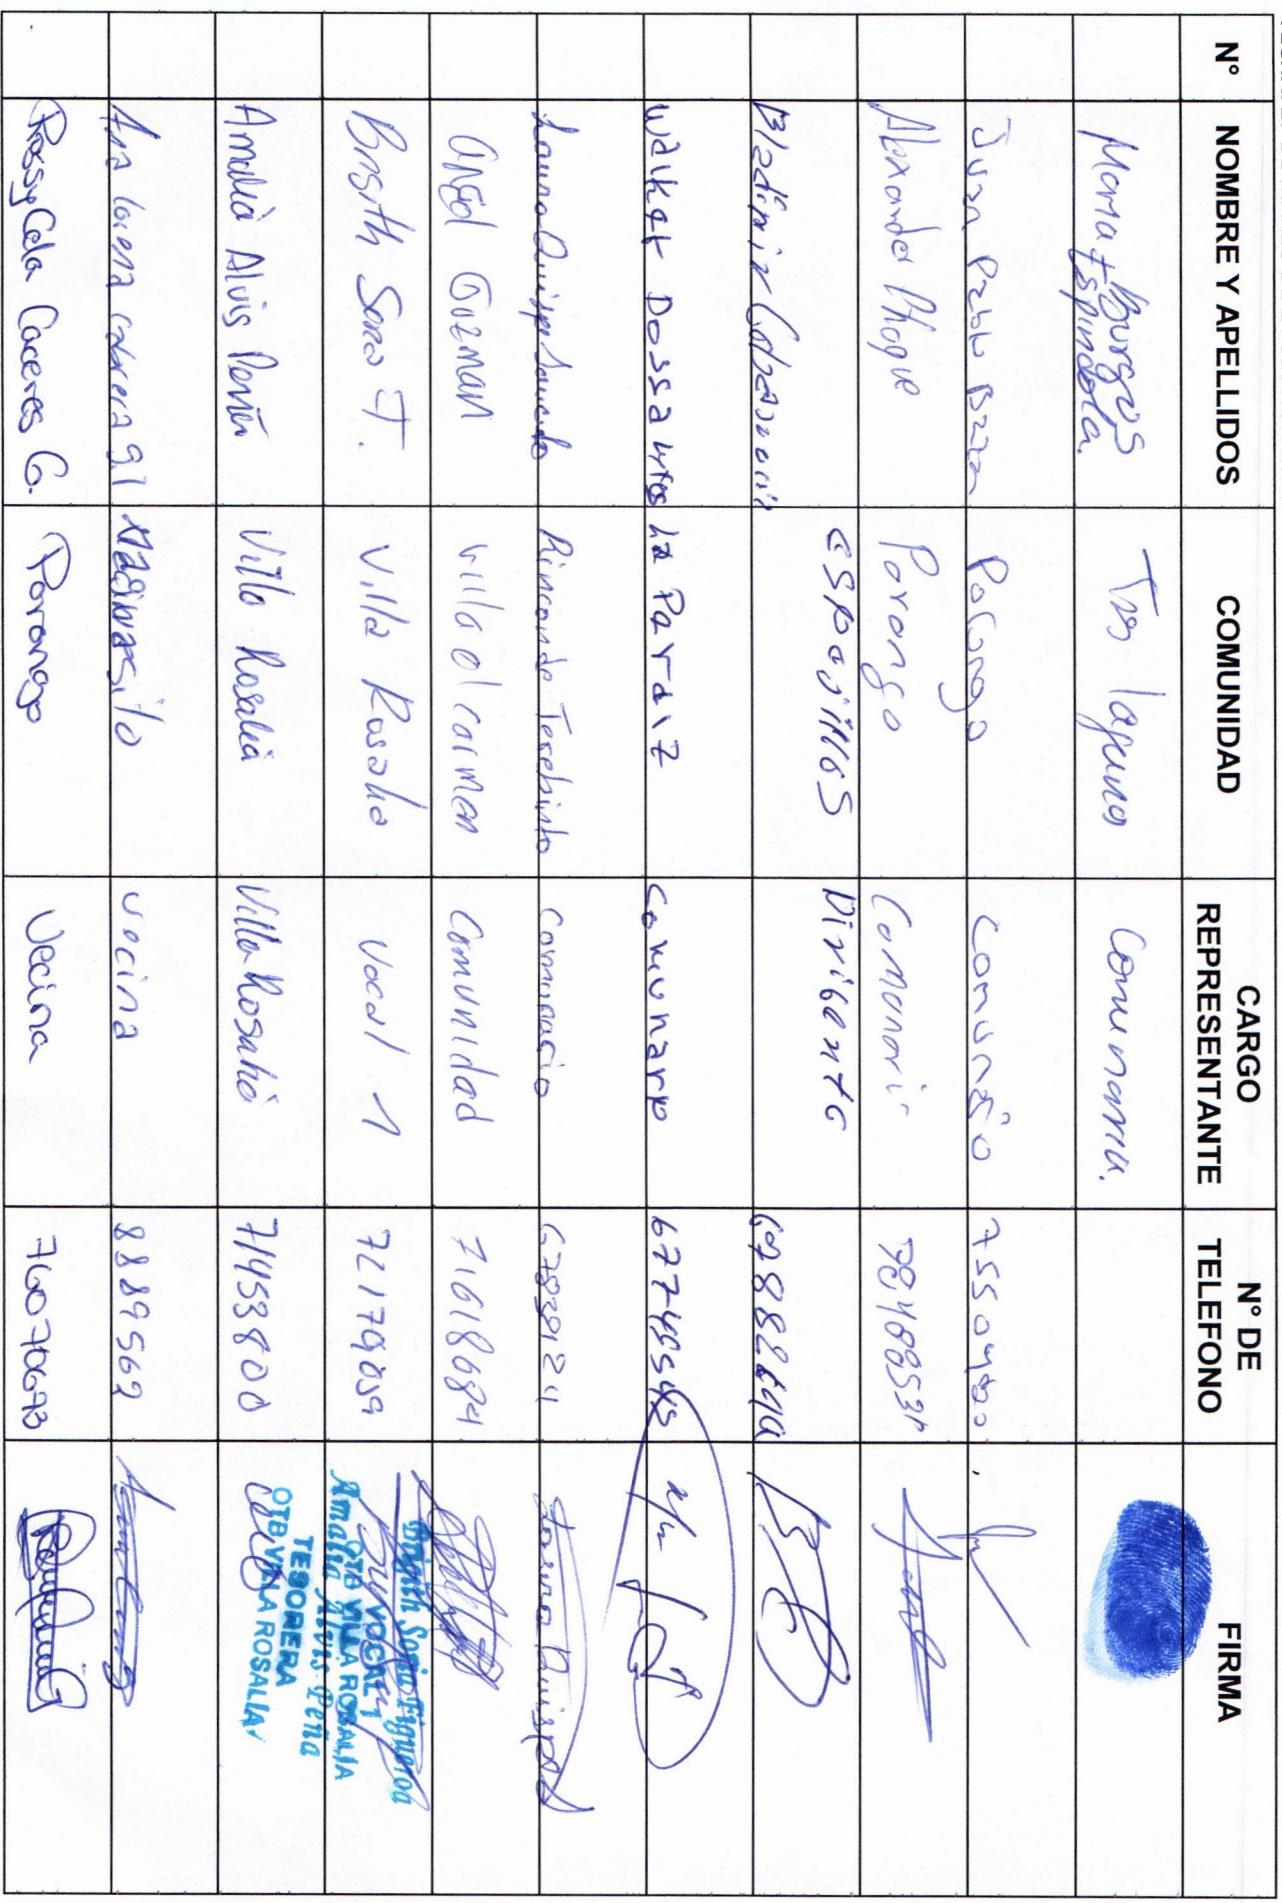 N° NOMBRE Y APELLIDOS COMUNIDAD CARGO REPRESENTANTE N° DE TELEFONO FIRMA
Maria Burgos Espindola. Tres lagunas Comunaria.
Juan Pablo Bazan Porongo Comunario
Alexander Choque Porongo Comunari
Bladimir espejillos Dirigente
Walker Dossantos La Paraiz comunaro
Laura Quispe Saucedo Rincon de Terebinto Comunario Laura Quispe
angel Guzman villa el carmen Comunidad 71618684
Brigith Soria F. Villa Rosalia Vocal 1 Brigith Soria Figueroa
VOCAL 1
OTB VILLA ROSALIA
Amalia Alvis Peña Villa Rosalia Villa Rosalia 71453800 Amalia Alvis Peña
TESORERA
OTB VILLA ROSALIA
Ana lorena cabrera gil vecina 8889569
Rossy Cela Caceres G. Porongo Vecina 76070693